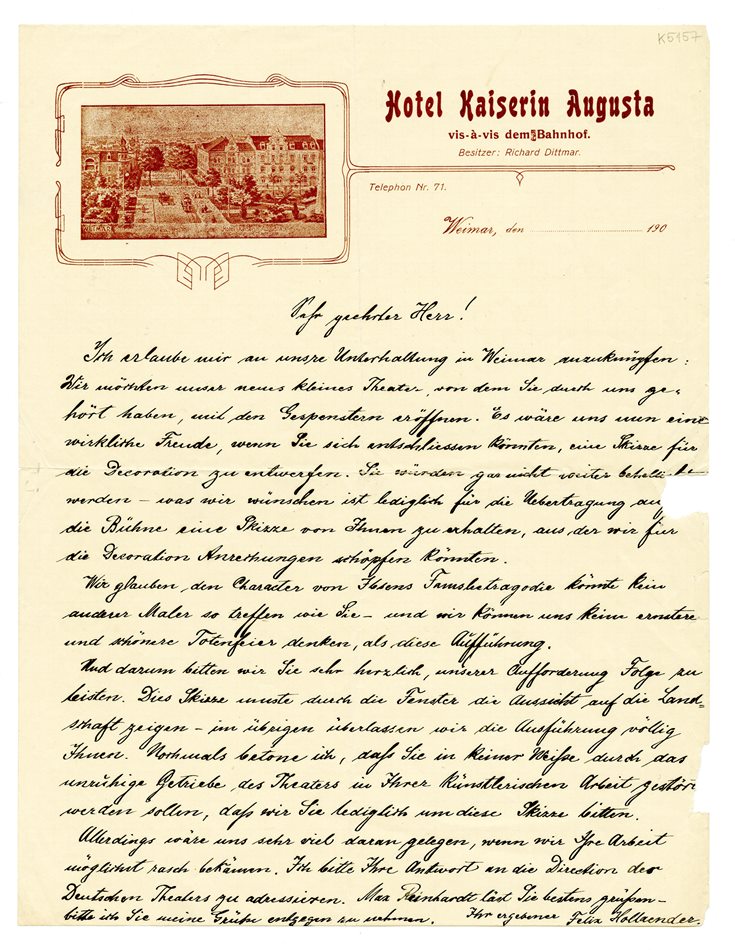 K5157
Hotel Kaiserin Augusta
vis-à-vis dem Bahnhof.
Besitzer: Richard Dittmar.
Telephon Nr. 71.
Weimar, den 190
WEIMAR
Sehr geehrter Herr!
Ich erlaube mir an unsre Unterhaltung in Weimar anzuknüpfen:
Wir möchten unser neues kleines Theater, von dem Sie durch uns ge-
hört haben, mit den Gespenstern eröffnen. Es wäre uns nun eine
wirkliche Freude, wenn Sie sich entschliessen könnten, eine Skizze für
die Decoration zu entwerfen. Sie würden gar nicht weiter behelli
werden – was wir wünschen ist lediglich für die Uebertragung au
die Bühne eine Skizze von Ihnen zu erhalten, aus der wir für
die Decoration Anrechungen schöpfen könnten.
Wir glauben, den Character von Ibsens Familientragödie könnte kein
anderer Maler so treffen wie Sie – und wir können uns keine ernstere
und schönere Totenfeier denken, als diese Aufführung.
Und darum bitten wir Sie sehr herzlich, unserer Aufforderung Folge zu
leisten. Dies Skizze müsste durch die Fenster die Aussicht auf die Land=
schaft zeigen – im übrigen überlassen wir die Ausführung völlig
Ihnen. Nochmals betone ich, daß Sie in keiner Weiße durch das
unruhige Getriebe des Theaters in Ihrer künstlerischen Arbeit gestört
werden sollen, daß wir Sie lediglich um diese Skizze bitten.
Allerdings wäre uns sehr viel daran gelegen, wenn wir Ihre Arbeit
möglichst rasch bekämen. Ich bitte Ihre Antwort an die Direction des
Deutschen Theaters zu adressieren. Max Reinhardt läst Sie bestens grüßen –
bitte ich Sie meine Grüße entgegen zu nehmen. Ihr ergebener Felix Hollaender.